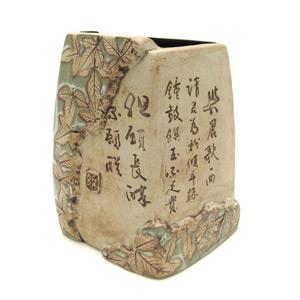 與君歌一曲
請君為我傾耳聽
鐘鼓饌玉不足貴
但願長醉
不願醒